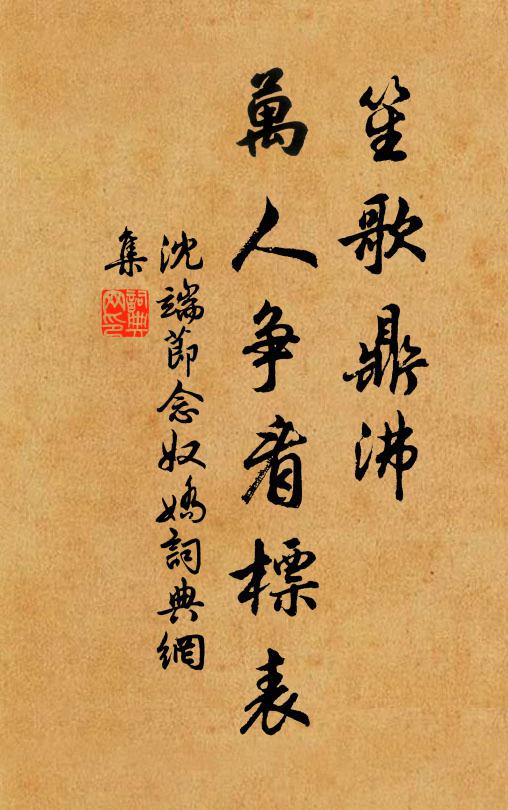 笙歌鼎沸
萬人争看標表
沈端節念奴嬌詞典網
集
詞典
网印